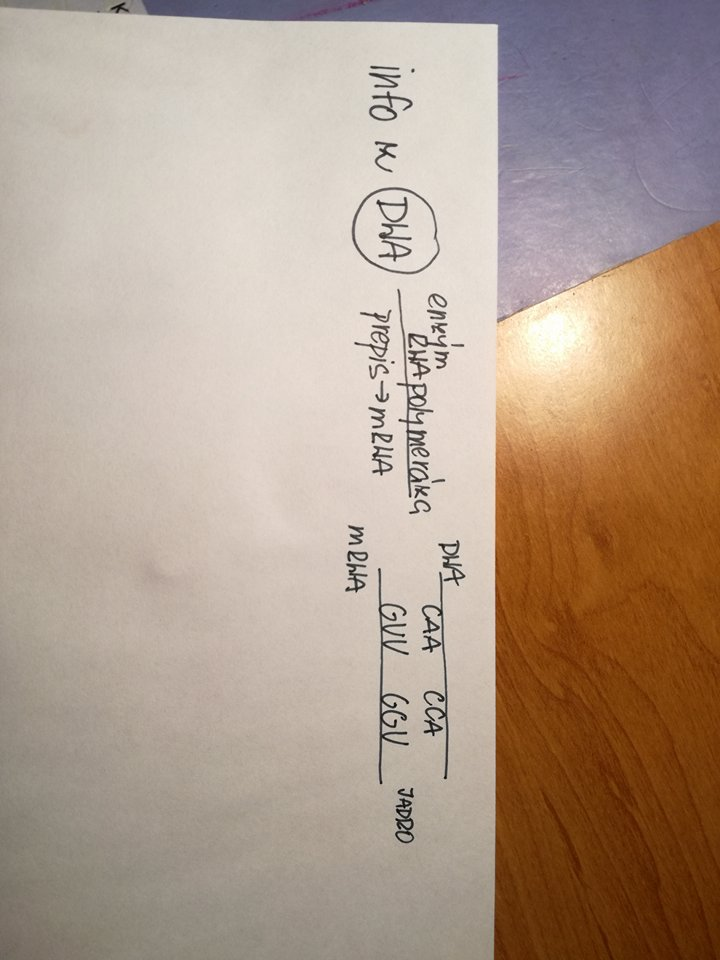 info v DNA
enzým
RNA polymeráza
prepis → mRNA
DNA CAA CCA
mRNA GUU GGU
JADRO